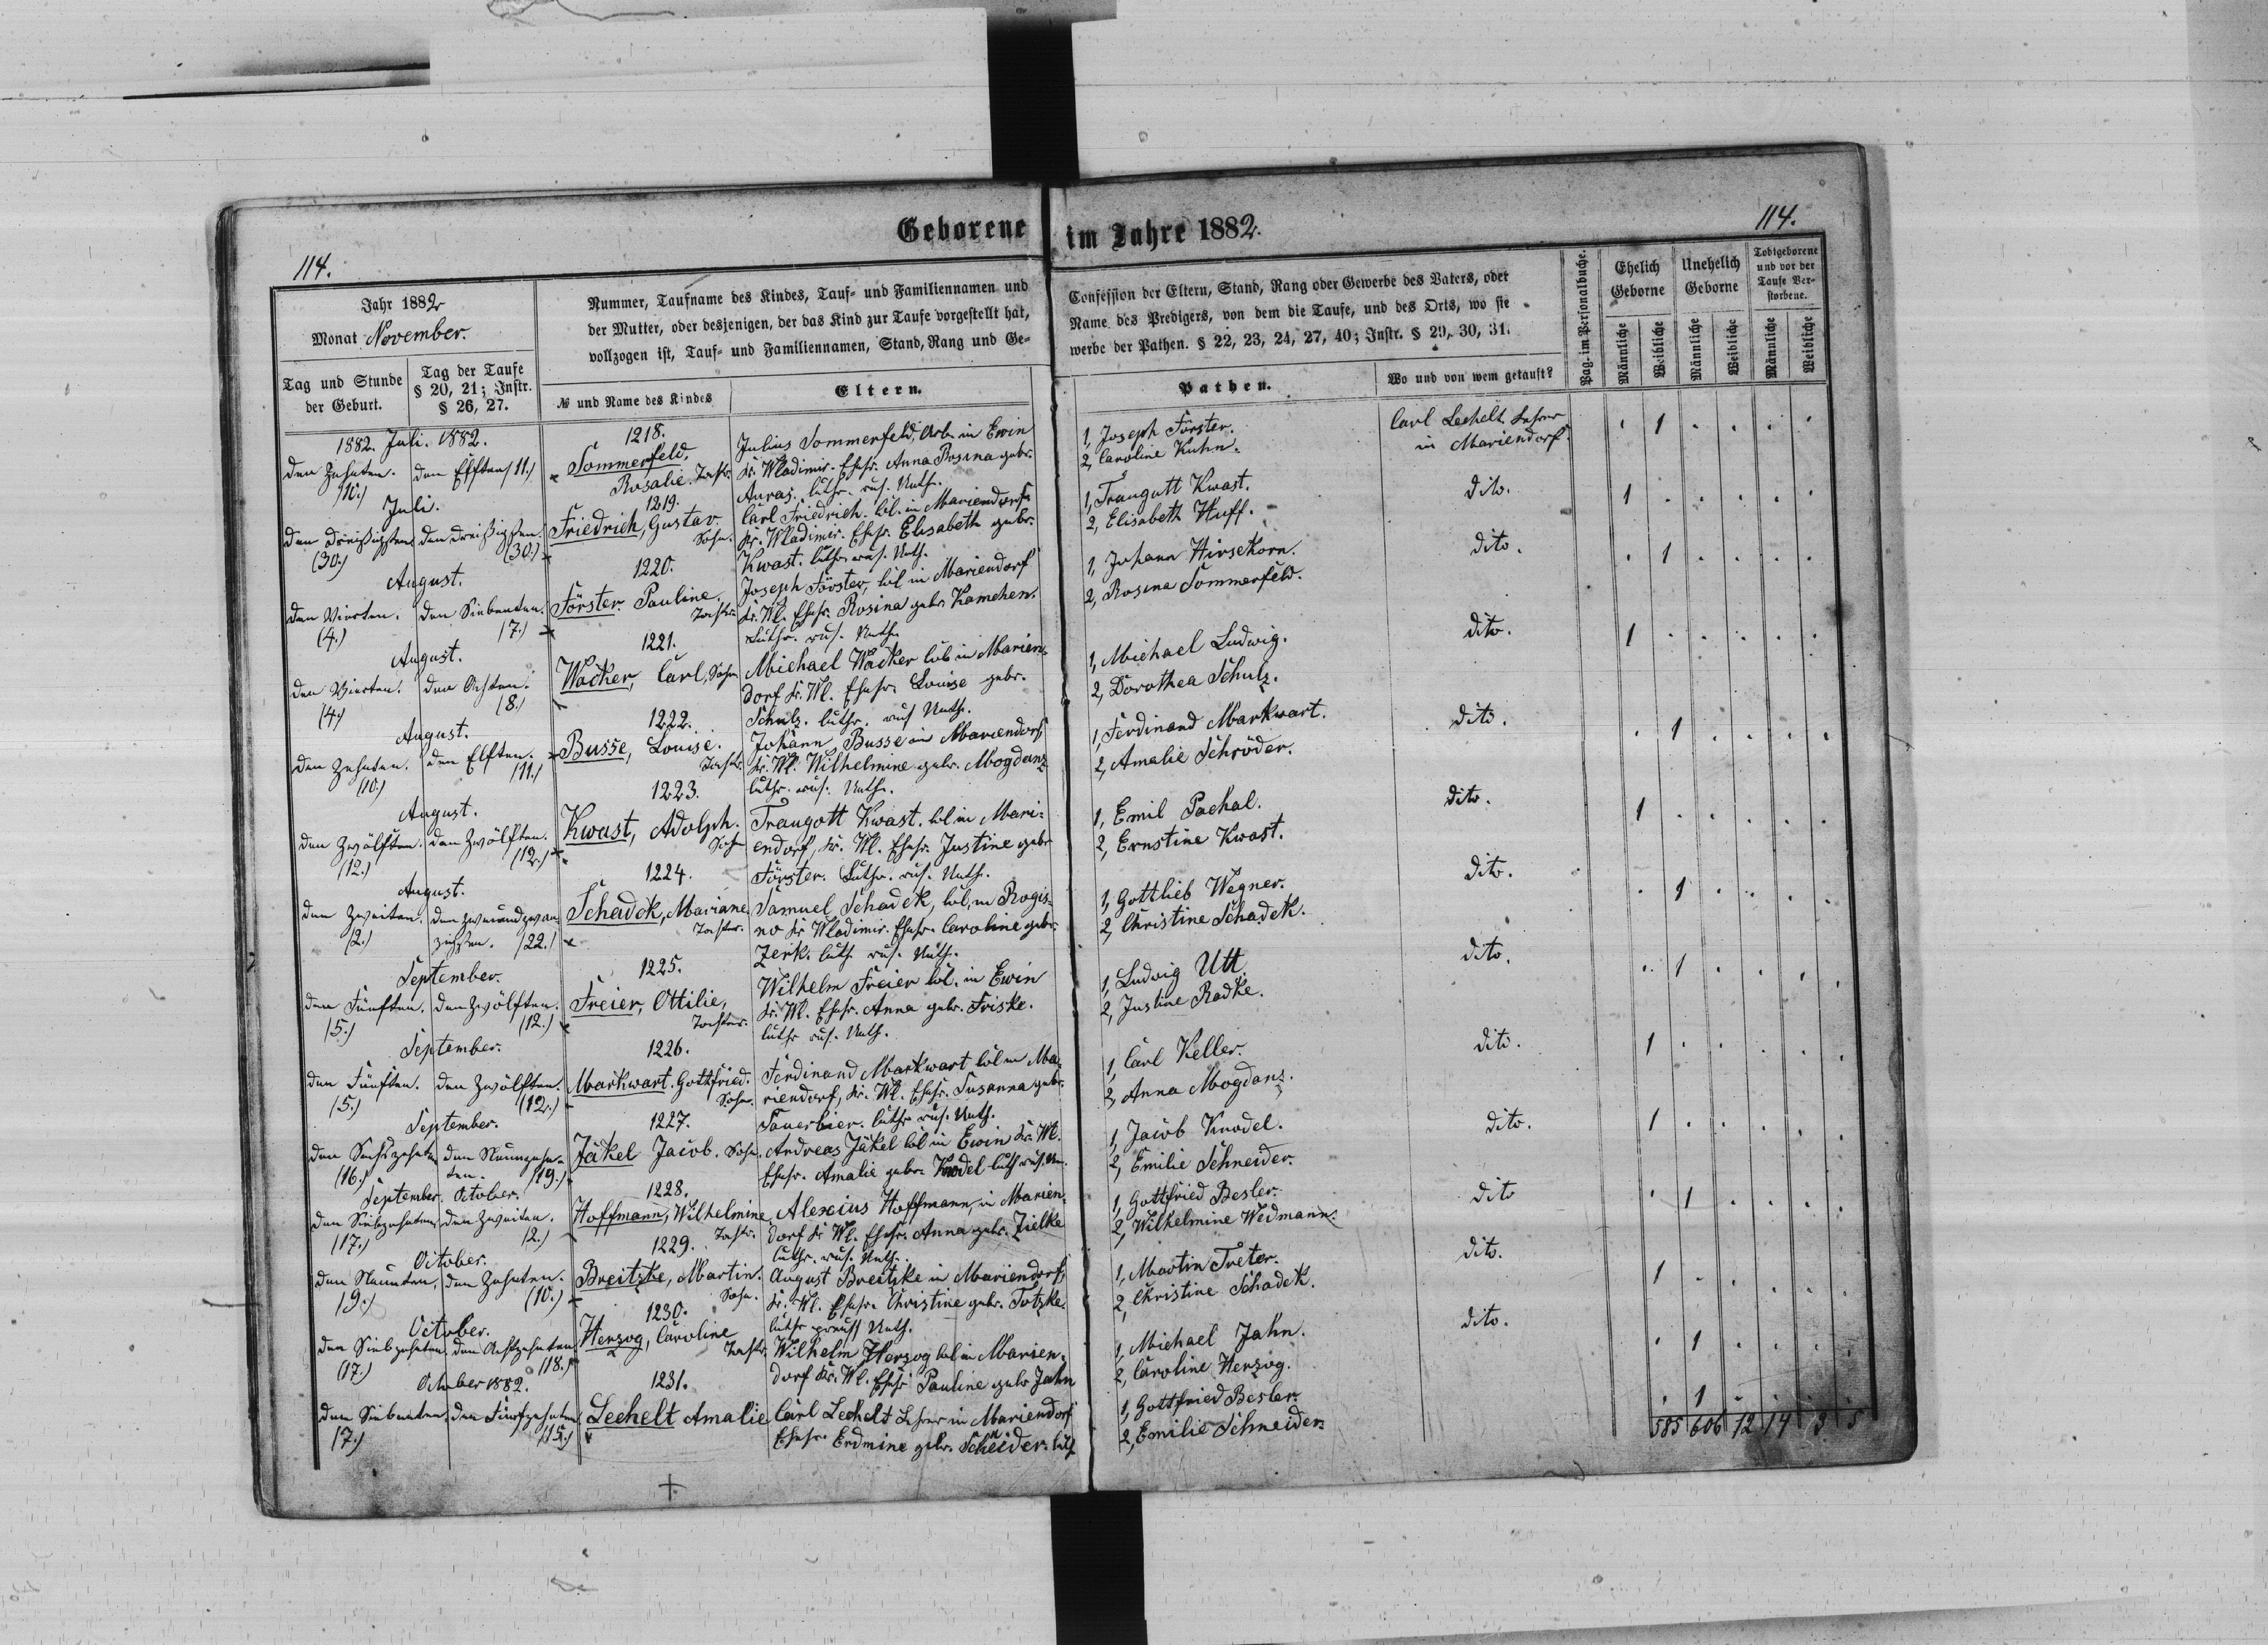 114.
Geborene im Jahre 1882.
114.
Jahr 1882
Monat November.
Tag und Stunde der Geburt.
Tag der Taufe § 20, 21; Instr. § 26, 27.
Nummer, Taufname des Kindes, Tauf- und Familiennamen und
der Mutter, oder desjenigen, der das Kind zur Taufe vorgestellt hat,
vollzogen ist, Tauf- und Familiennamen, Stand, Rang und Ge-
№ und Name des Kindes
Eltern.
Confession der Eltern, Stand, Rang oder Gewerbe des Vaters, oder
Name des Predigers, von dem die Taufe, und des Orts, wo sie
werbe der Pathen. § 22, 23, 24, 27, 40; Instr. § 29, 30, 31.
Pathen.
Wo und von wem getauft?
Pag. im Personalbuche.
Ehelich Geborne
Unehelich Geborne
Todtgeborene und vor der Taufe Verstorbene.
Männliche
Weibliche
Männliche
Weibliche
Männliche
Weibliche
1882. Juli. 1882.
den Zehnten. den Elften (11.)
(10.)
1218.
Sommerfeld,
Rosalie. Tocht.
Julius Sommerfeld, Arb. in Ewin
Kr. Wladimir. Ehefr. Anna Rosina gebr.
Auras. luth. rus. Unth.
1, Joseph Förster.
2, Caroline Kuhn.
Carl Lechelt Lehrer
in Mariendorf.
Juli.
den Dreißigsten den Dreißigsten.
(30.) (30.)
1219.
Friedrich, Gustav.
Sohn.
Carl Friedrich. Col. in Mariendorf
Kr. Wladimir. Ehefr. Elisabeth gebr.
Kwast. luthr. rus. Unth.
1, Traugott Kwast.
2, Elisabeth Huff.
dito.
August.
den Vierten. den Siebenten.
(4.) (7.)
1220.
Förster. Pauline.
Tocht.
Joseph Förster, Col. in Mariendorf
Kr. Wl. Ehefr. Rosina gebr. Kamchen.
Luthr. rus. Unth.
1, Johann Hirsekorn.
2, Rosina Sommerfeld.
dito.
August.
den Vierten. den Achten.
(4.) (8.)
1221.
Wacker, Carl, Sohn
Michael Wacker Col. in Marien-
dorf Kr. Wl. Ehefr. Louise gebr.
Schulz. luthr. rus. Unth.
1, Michael Ludwig.
2, Dorothea Schulz.
dito.
August.
den Zehnten. den Elften.
(10.) (11.)
1222.
Busse, Louise.
Tocht.
Johann Busse in Mariendorf,
Kr. Wl. Wilhelmine gebr. Mogdanz
luthr. rus. Unth.
1, Ferdinand Markwart.
2, Amalie Schröder.
dito.
August.
den Zwölften. den Zwölften.
(12.) (12.)
1223.
Kwast, Adolph.
Sohn
Traugott Kwast. Col. in Mari-
endorf, Kr. Wl. Ehefr. Justine gebr.
Förster. Luthr. rus. Unth.
1, Emil Pachal.
2, Ernstine Kwast.
dito.
August.
den Zweiten. den zweiundzwan-
(2.) zigsten. (22.)
1224.
Schadek, Mariane
Tochter.
Samuel Schadek, Col. in Rogis-
no Kr. Wladimir. Ehefr. Caroline gebr.
Zerk. luth. rus. Unth.
1, Gottlieb Wegner.
2, Christine Schadek.
dito.
September.
den Fünften. den Zwölften.
(5.) (12.)
1225.
Freier, Ottilie,
Tochter.
Wilhelm Freier Col. in Ewin
Kr. Wl. Ehefr. Anna gebr. Friske.
luthr rus. Unth.
1, Ludwig Utt.
2, Justine Radke.
dito.
September.
den Fünften. den Zwölften.
(5.) (12.)
1226.
Markwart. Gottfried.
Sohn.
Ferdinand Markwart Col. in Ma-
riendorf, Kr. Wl. Ehefr. Susanna gebr.
Sauerbier. luthr rus. Unth.
1, Carl Keller.
2, Anna Mogdanz.
dito.
September.
den Sechszehnten den Neunzehn-
(16.) ten. (19.)
1227.
Jäkel Jacob. Sohn.
Andreas Jäkel Col. in Ewin Kr. Wl.
Ehefr. Amalie gebr. Knodel luth rus. Un.
1, Jacob Knodel.
2, Emilie Schneider.
dito.
September. October.
den Siebzehnten den Zweiten.
(17.) (2.)
1228.
Hoffmann, Wilhelmine
Tocht.
Alexius Hoffmann, in Marien-
dorf Kr. Wl. Ehefr. Anna gebr. Zielke
luthr. rus. Unth.
1, Gottfried Besler.
2, Wilhelmine Wedmann.
dito
October.
den Neunten, den Zehnten.
(9.) (10.)
1229.
Breitzke, Martin.
Sohn.
August Breitzke in Mariendorf,
Kr. Wl. Ehefr. Christine gebr. Totzke.
luthr preuss Unth.
1, Martin Treter.
2, Christine Schadek.
dito.
October.
den Siebzehnten den Achtzehnten
(17.) (18.)
1230.
Herzog, Caroline
Tocht.
Wilhelm Herzog Col. in Marien-
dorf Kr. Wl. Ehefr Pauline gebr Jahn
1, Michael Jahn.
2, Caroline Herzog.
dito.
October 1882.
den Siebenten den Fünfzehnten
(7.) (15.)
1231.
Lechelt Amalie
Carl Lechelt Lehrer in Mariendorf
Ehefr. Erdmine gebr. Scheider. luth
1, Gottfried Besler
2, Emilie Schneider.
585 606 12 14 3 5